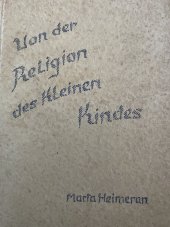 Von der
Religion
des kleinen
Kindes
Marta Heimeran